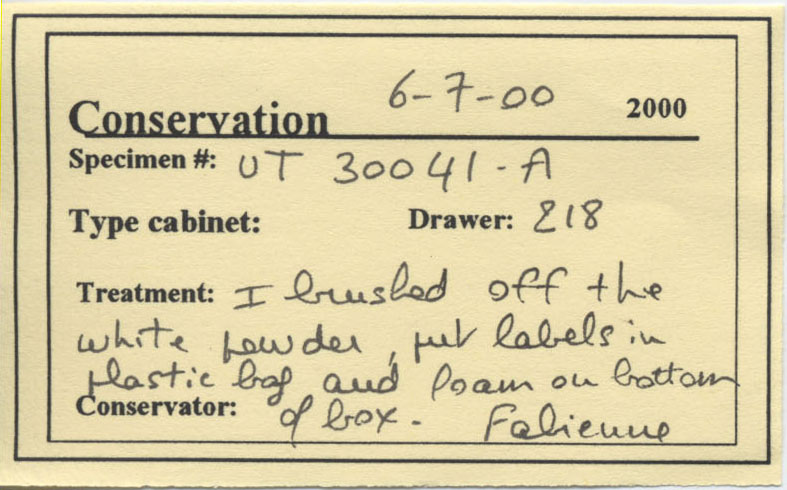 6-7-00
Conservation 2000
Specimen #: UT 30041-A
Type cabinet: Drawer: 218
Treatment: I brushed off the
white powder, put labels in
plastic bag and foam on bottom
Conservator: of box. Fabienne